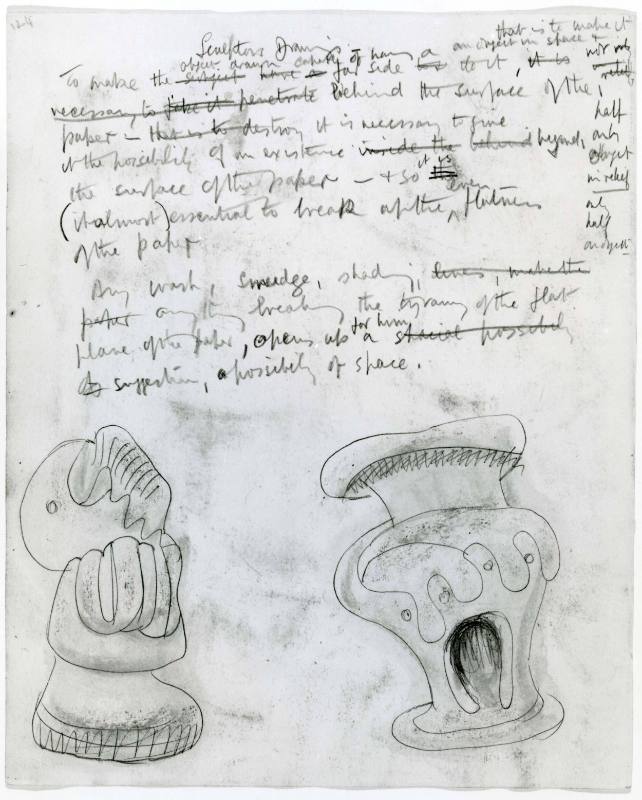 Sculptors Drawings.
that is to make it
object drawn capable of having a an object in space &
To make the subject have a far side to it, it is not only
necessary to fake it penetrate behind the surface of the relief,
paper — that is to destroy it is necessary to give half
it the possibility of an existence inside the behind beyond, only
the surface of the paper — & so it is object
in relief
(it almost) essential to break up the even flatness only
half
of the paper an object
Any wash, smudge, shading, lines, make the
paper anything breaking the tyranny of the flat
plane of the paper, opens up for him a spacial possibility
of suggestion, a possibility of space.